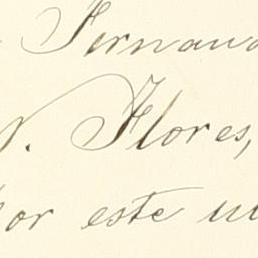 Fernand
N. Flores,
Por este u